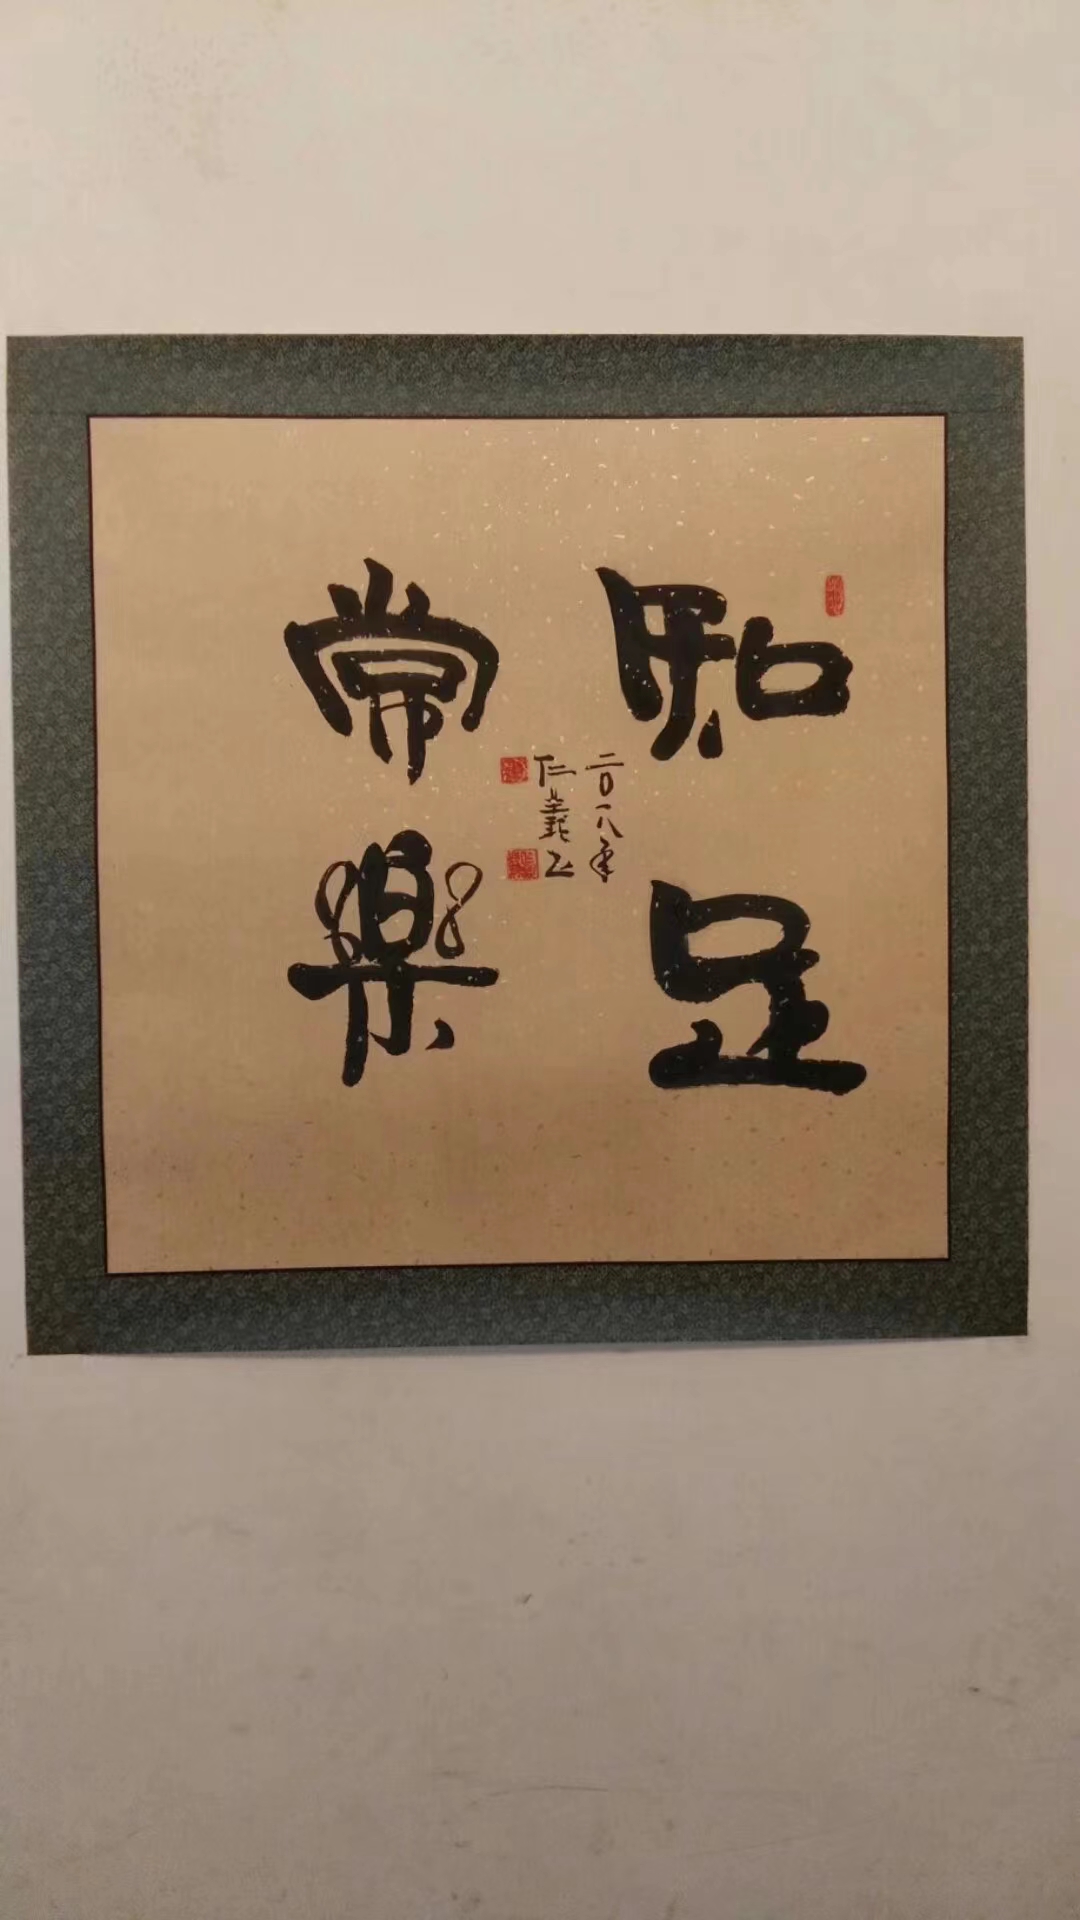 知足
常樂
二〇一八年
仁義书